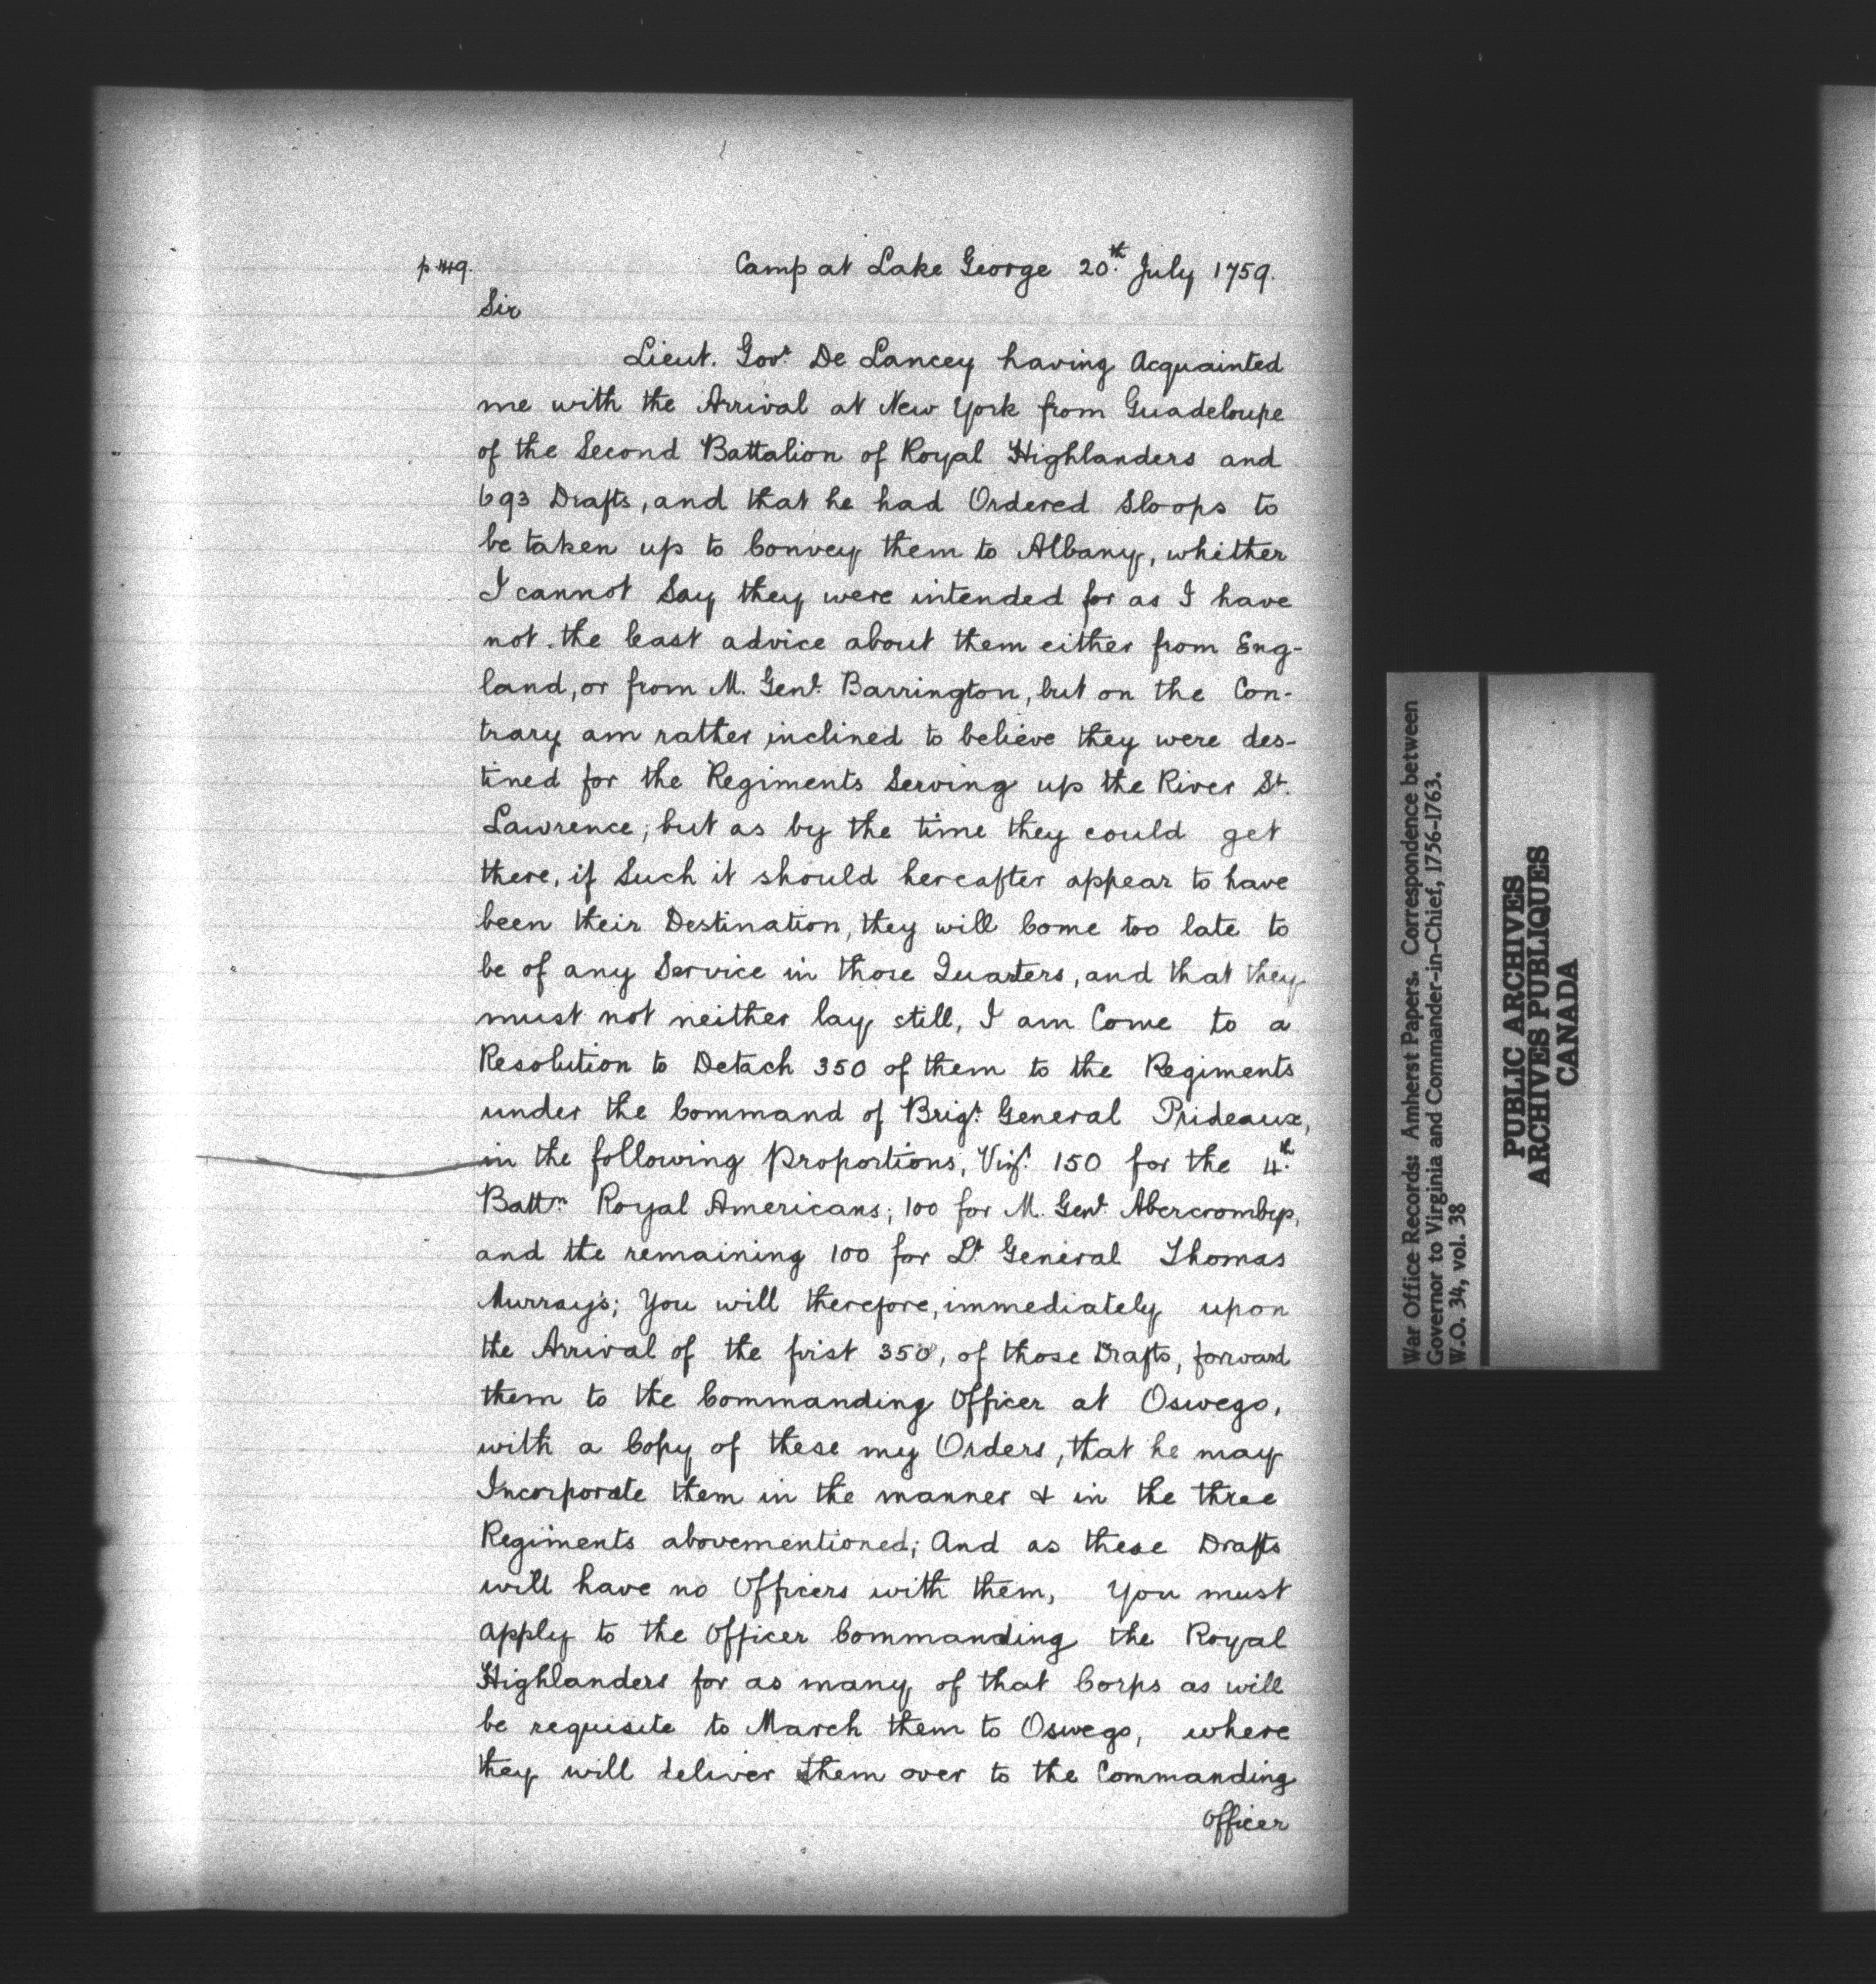 p 149.
Camp at Lake George 20.th July 1759.
Sir
Lieut. Govr. De Lancey having Acquainted
me with the Arrival at New York from Guadeloupe
of the Second Battalion of Royal Highlanders and
693 Drafts, and that he had Ordered Sloops to
be taken up to Convey them to Albany, whither
I cannot Say they were intended for as I have
not the least advice about them either from Eng-
land, or from M. Genl. Barrington, but on the Con-
trary am rather inclined to believe they were des-
tined for the Regiments Serving up the River St.
Lawrence; but as by the time they could get
there, if Such it should hereafter appear to have
been their Destination, they will Come too late to
be of any Service in those Quarters, and that they
must not neither lay still, I am Come to a
Resolution to Detach 350 of them to the Regiments
under the Command of Brigr. General Prideaux,
in the following Proportions, Vizt. 150 for the 4.th
Battn. Royal Americans; 100 for M. Genl. Abercrombys,
and the remaining 100 for Lt. General Thomas
Murray's; You will therefore, immediately upon
the Arrival of the first 350, of those Drafts, forward
them to the Commanding Officer at Oswego,
with a Copy of these my Orders, that he may
Incorporate them in the manner & in the three
Regiments abovementioned; And as these Drafts
will have no Officers with them, You must
apply to the Officer Commanding the Royal
Highlanders for as many of that Corps as will
be requisite to March them to Oswego, where
they will deliver them over to the Commanding
Officer
War Office Records: Amherst Papers. Correspondence between
Governor to Virginia and Commander-in-Chief, 1756-1763.
W.O. 34, vol. 38
PUBLIC ARCHIVES
ARCHIVES PUBLIQUES
CANADA